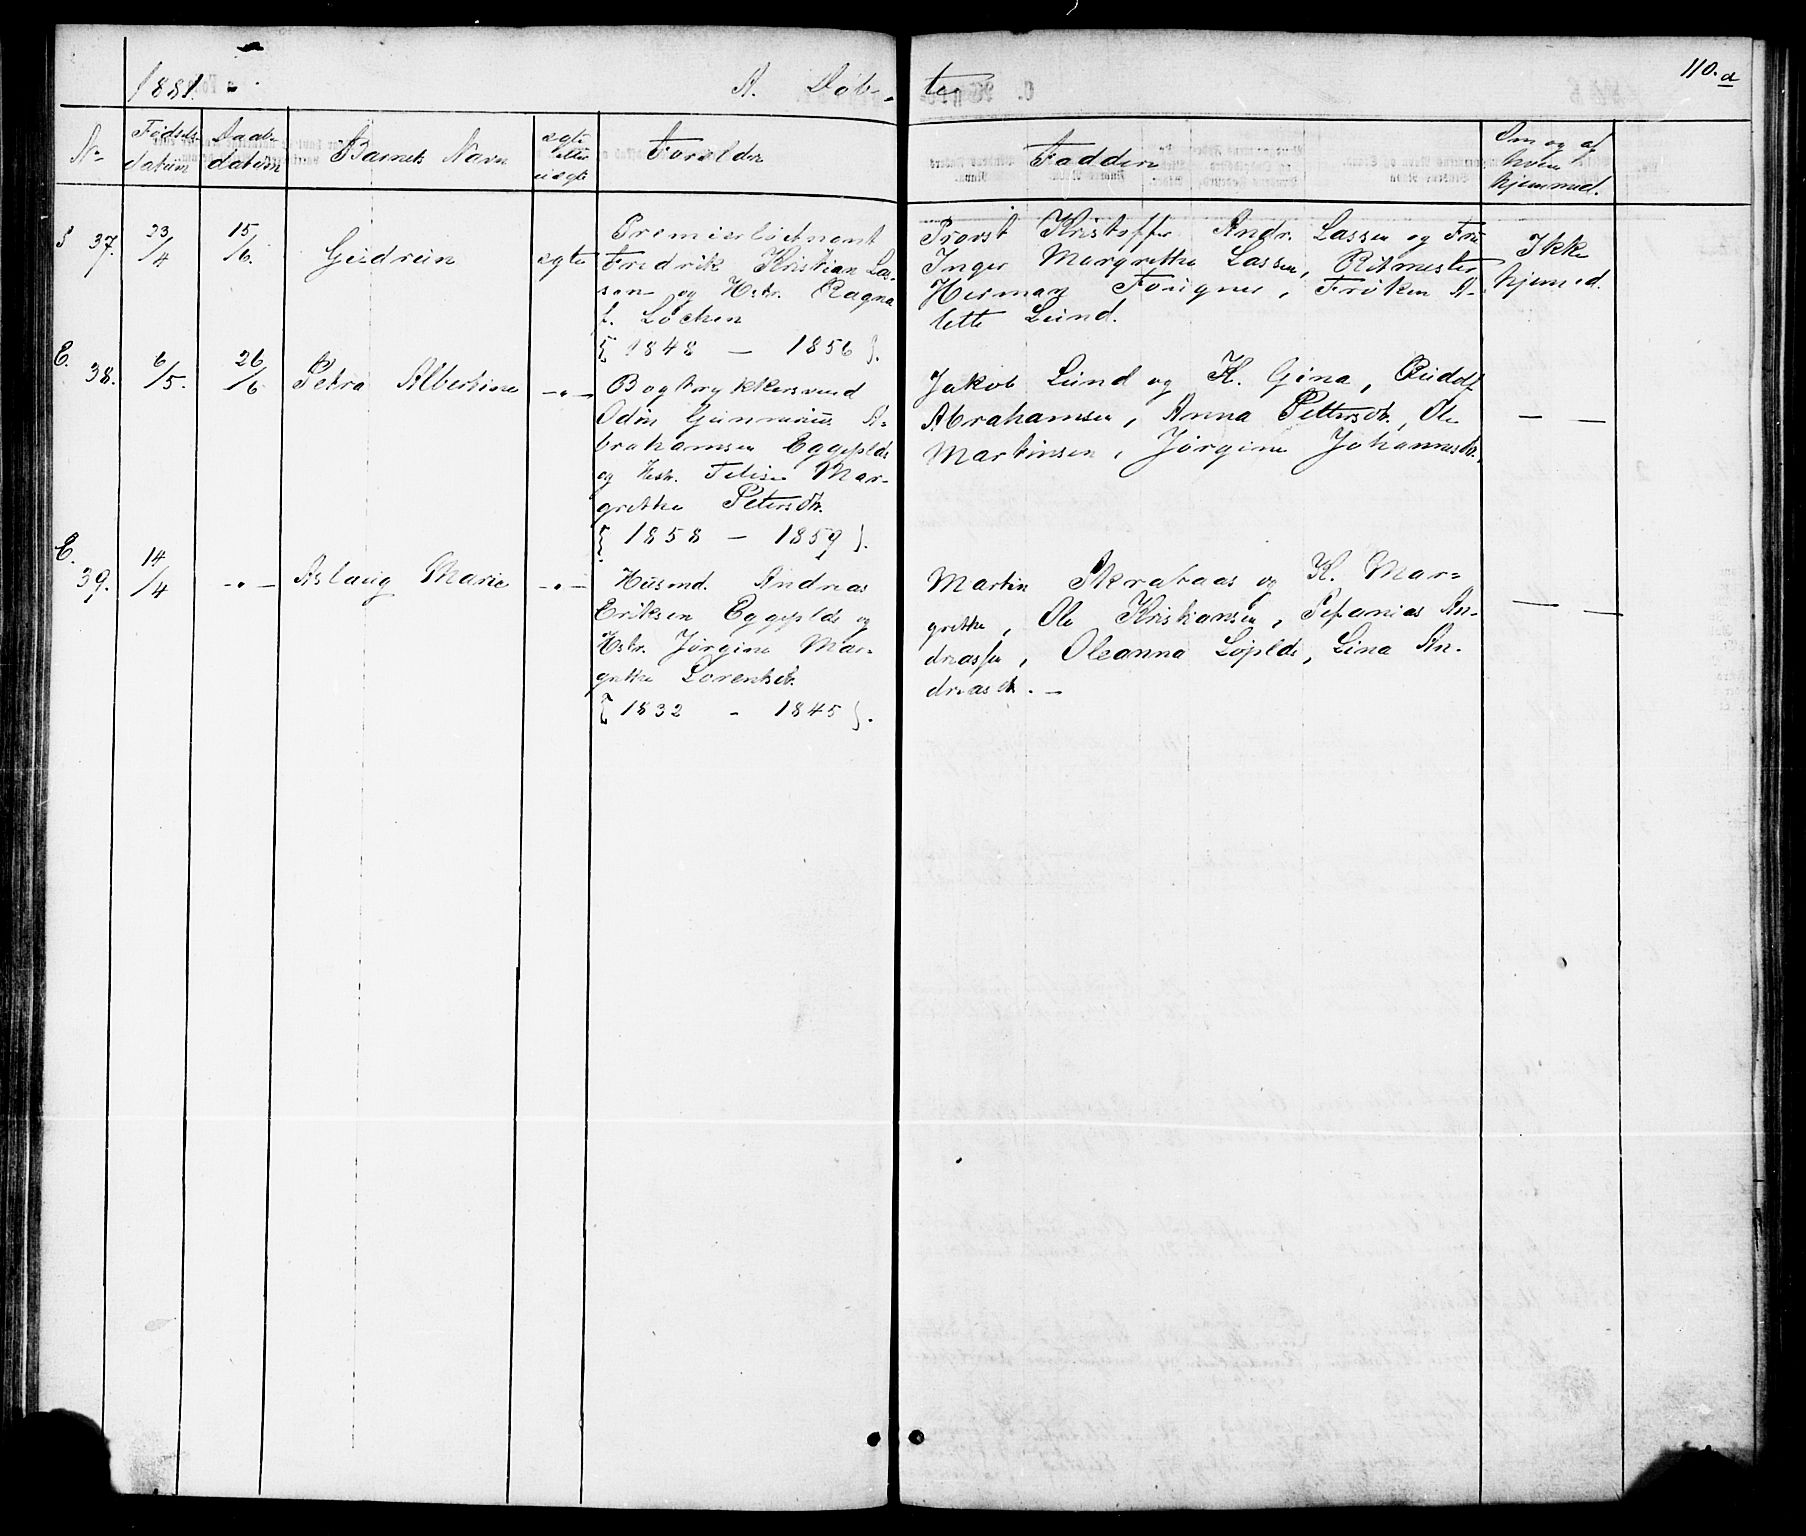 110. a
1881.
A. Døb-
te
No
Fødsels-
datum
Daabs-
datum
Barnets Navn
egte
eller
uegte
Forældre
Faddere
Om og af
hvem
hjemmed.
S 37.
23/4
15/6.
Gudrun
egte
Premierløitnant
Fredrik Kristian Las-
sen og Hstr. Ragna
f. Lochen
[1848 – 1856].
Provst Kristoffer Andr. Lassen og Fru
Inger Margrethe Lassen, Ritmester
Herman Fougner, Frøken A-
lette Lund.
Ikke
hjemmed.
E.
38.
6/5.
26/6
Petra Albertine
–"–
Bogtrykkersvend
Odin Gunnarius A-
brahamsen Eggeplds
og Hstr. Felise Mar-
grethe Petersdtr.
[1858 – 1859].
Jakob Lund og K. Gina, Rudolf
Abrahamsen, Anna Pettersdtr., Ole
Martinsen, Jørgine Johannesdtr.
— —
E.
39.
14/4
–"–
Aslaug Marie
–"–
Husmd. Andreas
Eriksen Eggeplds og
Hstr. Jørgine Mar-
grethe Lorentsdtr.
[1832 - 1845].
Martin Skrataas og K. Mar-
grethe, Ole Kristiansen, Sefanias An-
dreassen, Oleanna Løplds, Lina An-
dreasdtr. –
— —